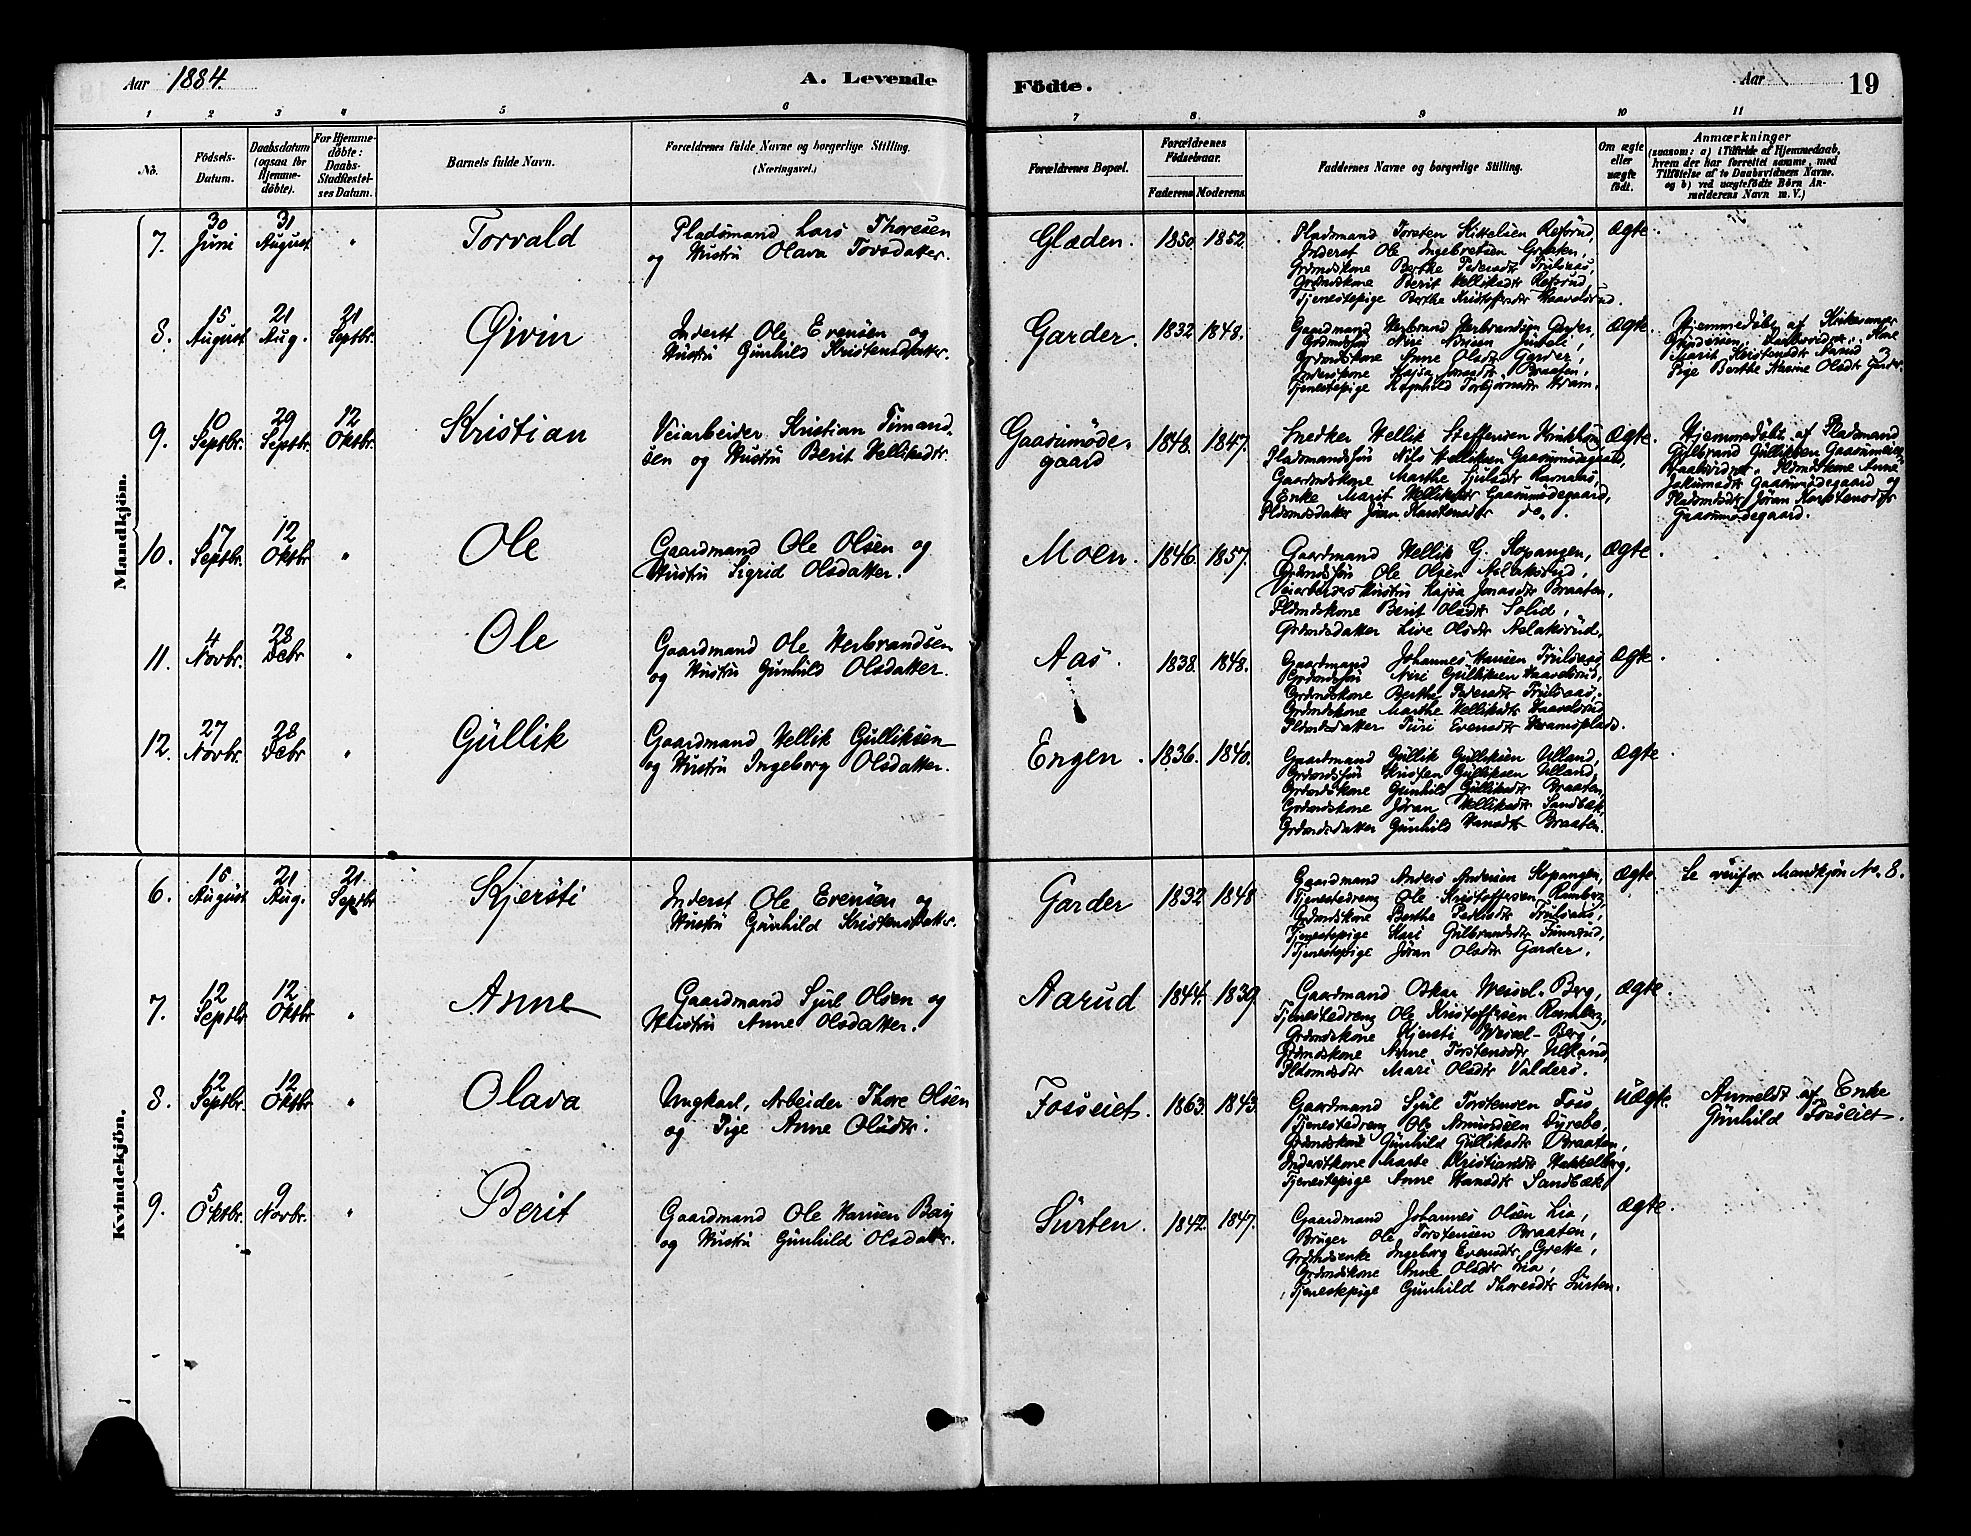 Aar 1884.
A. Levende
Födte.
Aar
19
1 2 3 4 5 6 7 8 9 10 11
No.
Födsels-Datum.
Daabsdatum (ogsaa for Hjemme-döbte).
For Hjemme-döbte: Daabs-Stadfæstel-ses Datum.
Barnets fulde Navn.
Forældrenes fulde Navne og borgerlige Stilling. (Næringsvei.)
Forældrenes Bopæl.
Forældrenes Födselsaar.
Faderens Moderens
Faddernes Navne og borgerlige Stilling.
Om ægte eller uægte födt.
Anmærkninger
(saasom: a) i Tilfælde af Hjemmedaab, hvem der har forrettet samme, med Tilföielse af to Daabsvidners Navne. og b) ved uægtefödte Börn An-melderens Navn m. V.)
Mandkjön.
7. 30 Juni 31 August " Torvald
Pladsmand Lars Thoresen
og Hustru Olava Torsdatter.
Glæden. 1850 1852.
Pladsmand Torsten Kittelsen Refsrud,
Inderst Ole Ingebretsen Græten,
Grdmdskone Berthe Pedersdtr Trulsaas,
Grdmdskone Berit Helliksdtr Refsrud,
Tjenestepige Berthe Kristofersdtr Haavelsrud.
ægte.
8. 15 August 21 Aug. 21 Septbr. Øivin
Inderst Ole Evensen og
Hustru Gunhild Kristensdatter.
Garder. 1832 1848.
Gaardmand Herbrand Herbrandsen Garder,
Grdmdskone Anne Olsdtr Garder,
Inderstkone Kajsa Jonasdtr Braaten,
Tjenestepige Ragnhild Torbjørnsdtr Kram.
ægte.
Hjemmedøbt af Kirkesanger
Marit Kristensdtr Aarud
Pige Berthe Marie Olsdtr Garder.
9. 10 Septbr. 29 Septbr. 12 Oktbr. Kristian
Veiarbeider Kristian Timand-
sen og Hustru Berit Helliksdtr.
Gaasumøde-
gaard 1848. 1847.
Snedker Hellik Steffensen
Pladsmandssøn Nils Helliksen Gaasumødegaard,
Gaardmdskone Marthe Sjulsdtr Ravnaas,
Enke Marit Helliksdtr Gaasumødegaard,
Pldsmdsdatter Jøran Karstensdtr do.
ægte.
Hjemmedøbt af Pladsmand
Gulbrand Gulliksen
Pldsmdskone Anne
Jakumsdtr Gaasumødegaard og
Pladsmdsdtr Jøran Karstensdtr
Gaasumødegaard.
10. 17 Septbr. 12 Oktbr " Ole
Gaardmand Ole Olsen og
Hustru Sigrid Olsdatter.
Moen. 1846. 1857.
Gaardmand Hellik G. Kopangen,
Grdmdssøn Ole Olsen Aslaksrud,
Veiarbeiders Hustru Kajsa Jonasdtr Braaten,
Pldsmdskone Berit Olsdtr Solid,
Grdmdsdatter Live Olsdtr Aslaksrud.
ægte.
11. 4 Novbr. 28 Debr " Ole
Gaardmand Ole Herbrandsen
og Hustru Gunhild Olsdatter.
Aas. 1838. 1848.
Gaardmand Johannes Hansen Trulsaas
Grdmdssøn Niri Gulliksen Haavelsrud,
Grdmdskone Berthe Pedersdtr Trulsaas,
Grdmdskone Marthe Helliksdtr Haavelsrud
Pldsmdsdatter Turi Evensdtr Kramsplads.
ægte.
12. 27 Novbr. 28 Debr " Gullik
Gaardmand Hellik Gulliksen
og Hustru Ingeborg Olsdatter.
Engen. 1836. 1848.
Gaardmand Gullik Gulliksen Ulland,
Grdmdssøn Kristen Gulliksen Ulland,
Grdmdskone Gunhild Gulliksdtr Braaten,
Grdmdskone Jøran Helliksdtr Sandbæk,
Grdmdsdatter Gunhild Hansdtr Braaten.
ægte.
Kvindekjön.
6. 15 August 21 Aug. 21 Septbr Kjersti
Inderst Ole Evensen og
Hustru Gunhild Kristensdatter.
Garder 1832 1848
Gaardmand Anders Andersen Kopangen,
Tjenestedreng Ole Kristoffersen Ramberg,
Grdmdskone Berthe Pedersdtr Trulsaas,
Tjenestepige Kari Gulbrandsdtr
Tjenestepige Jøran Olsdtr Garder.
ægte.
Se ovenfor Mandkjøn No. 8.
7. 12 Septbr 12 Oktbr " Anne
Gaardmand Sjul Olsen og
Hustru Anne Olsdatter.
Aarud 1844. 1839.
Gaardmand Oskar Wessel-Berg,
Tjenestedreng Ole Kristoffersen Ramberg,
Grdmdskone Kjersti Wessel-Berg,
Grdmdskone Anne Torstensdtr Ulland,
Pldsmdsdtr Mari Olsdtr Valders.
ægte.
8. 12 Septbr. 12 Oktbr " Olava
Ungkarl, Arbeider Thore Olsen
og Pige Anne Olsdtr.
Fosseiet. 1863. 1843.
Gaardmand Sjul Torstensen Foss,
Tjenestedreng Ole Amundsen Dyrebo,
Grdmdskone Gunhild Gulliksdtr Braaten,
Inderstkone Marte Kristiansdtr Hakkelberg,
Tjenestepige Anne Hansdtr Sandbæk.
uægte.
Anmeldt af Enke
Gunhild Fosseiet.
9. 5 Oktbr. 9 Novbr. " Berit
Gaardmand Ole Hansen Berg
og Hustru Gunhild Olsdatter.
Surten. 1842. 1847.
Gaardmand Johannes Olsen Lia,
Bruger Ole Torstensen Braaten,
Grdmdsenke Ingeborg Evensdtr Grette,
Grdmdskone Anne Olsdtr Lia,
Tjenestepige Gunhild Thoresdtr Surten.
ægte.